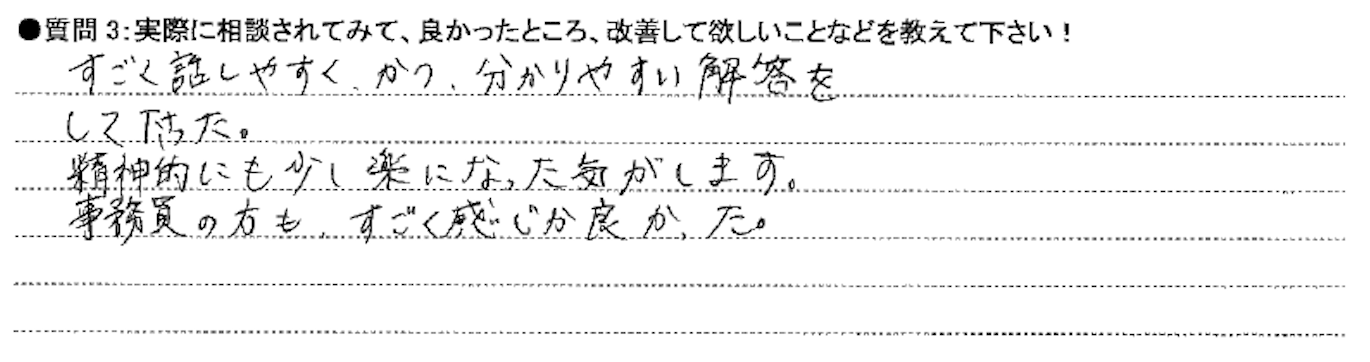 ●質問3:実際に相談されてみて、良かったところ、改善して欲しいことなどを教えて下さい!
すごく話しやすく、かつ、分かりやすい解答を
して下さった。
精神的にも少し楽になった気がします。
事務員の方も、すごく感じが良かった。